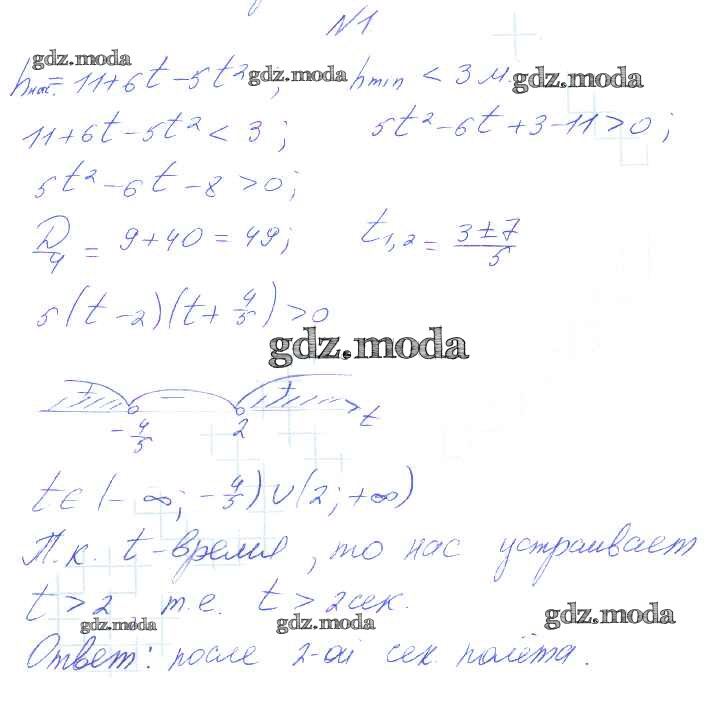 N1
gdz.moda
hнат. = 11+6t-5t²; hmin < 3 м. gdz.moda gdz.moda
11+6t-5t² < 3; 5t²-6t+3-11>0;
5t²-6t-8>0;
D/4 = 9+40=49; t1,2 = (3±7)/5
5(t-2)(t+4/5)>0
gdz.moda
+ − +
-4/5 2 t
t∈(-∞; -4/5)∪(2;+∞)
Т.к. t-время, то нас устраивает
t>2 т.е. t>2сек. gdz.moda
gdz.moda gdz.moda
Ответ: после 2-ой сек. полёта.